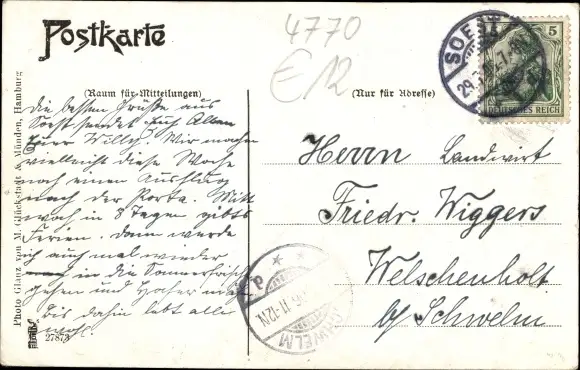 Postkarte
4770
€12
SOEST
5
DEUTSCHES REICH
(Raum für Mitteilungen)
(Nur für Adresse)
Die besten Grüße aus
Soest sendet Euch Allen
Euer Willy. Wir machen
vielleicht diese Woche
noch einen Ausflug
nach der Porta. Mitt
woch in 8 Tagen gibts
Ferien. Dann werde
ich auch mal wieder
in die Sommerfrische
gehen und
Bis dahin lebt alle
wohl.
Herrn Landwirt
Friedr. Wiggers
Welschenholt
b/ Schwelm
SCHWELM
11-12N
Photo Glanz von M. Glückstadt & Münden, Hamburg
27873